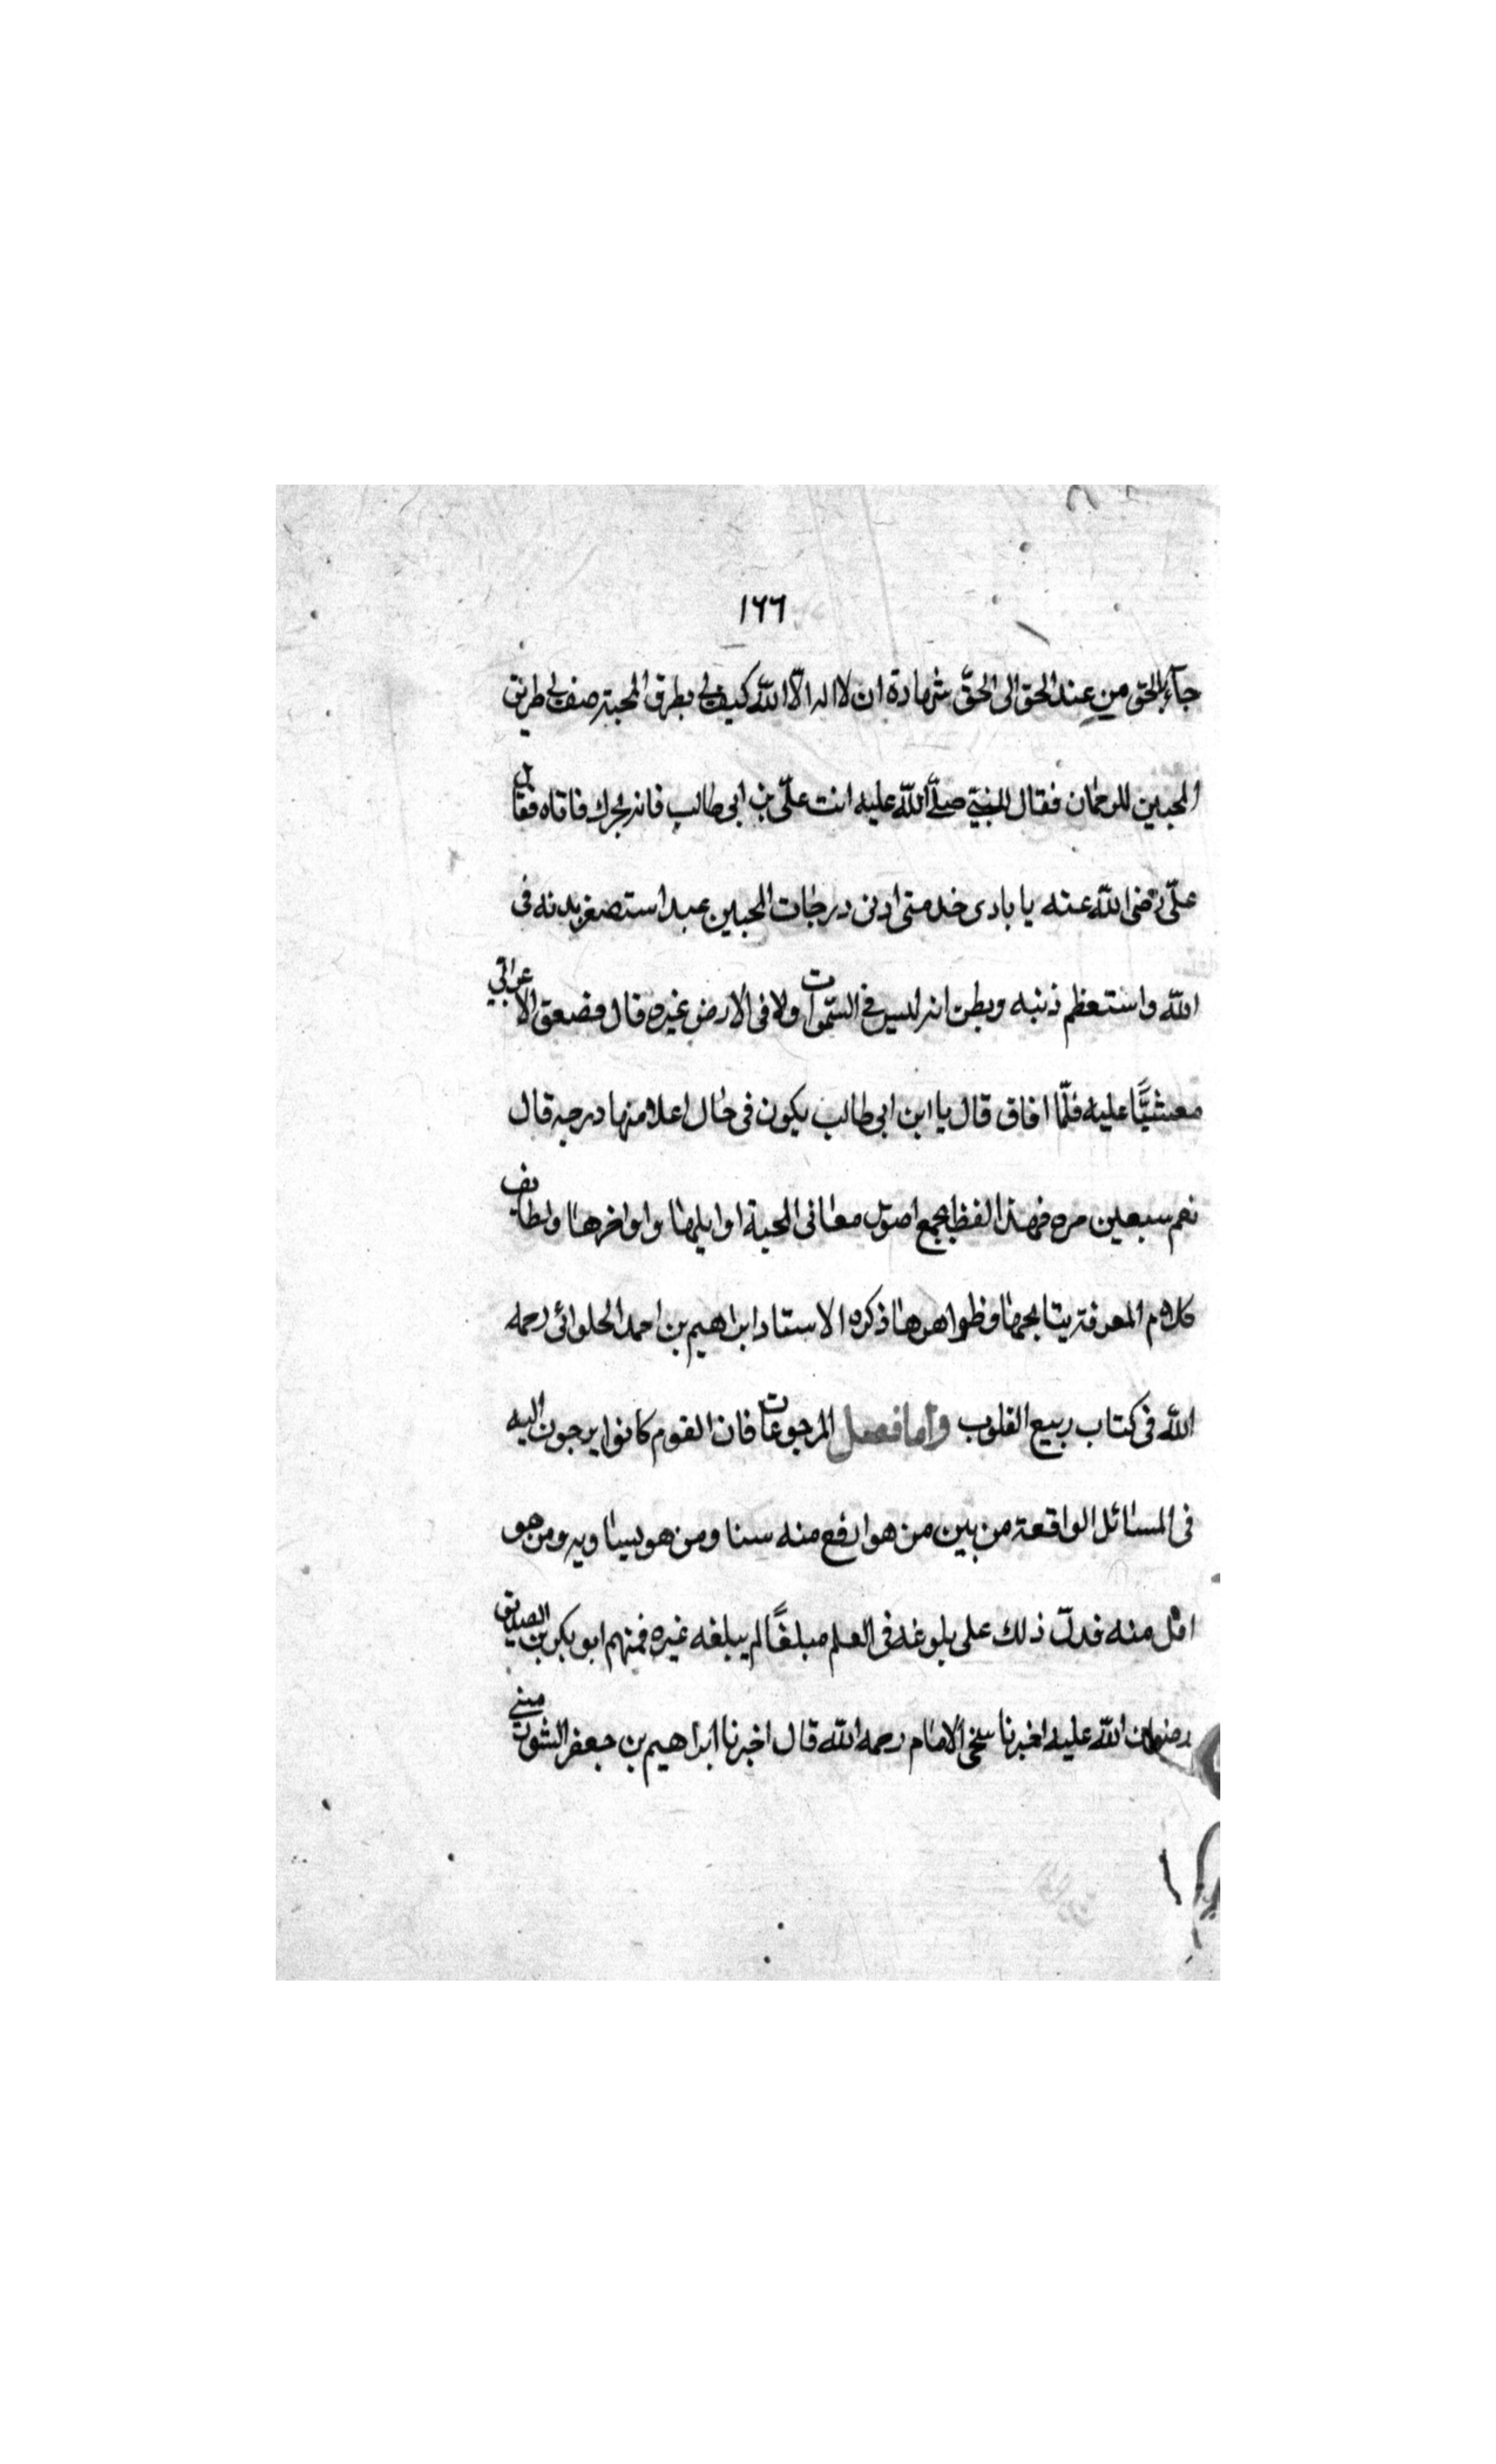 ١٦٦
جآء بالحق من عند الحق الى الحقّ شهادة ان لا اله الّا اللّه كيف لى بطرق المحبة صف لى طريق
المحبين للرحمان فقال النبيّ صلّى اللّه عليه انت علىّ بن ابى طالب فانه يخبرك فاتاه فقال
علىّ رضى اللّه عنه يا بادى خدمتى ادنى درجات المحبين عبد استصغر بدنه فى
اللّه واستعظم ذنبه ويظن انه ليس فى السّموات ولا فى الارض غيره قال فصعق الاعرابّي
مغشيًّا عليه فلمّا افاق قال يا ابن ابى طالب يكون فى حال اعلا منها درجه قال
نعم سبعين مره فهذا لفظ يجمع اصول معانى المحبة اوايلها واواخرها ولطايف
كلام المعرفة ذكره الاستاد ابراهيم بن احمد الحلوائى رحمه
اللّه فى كتاب ربيع القلوب واما فصل المرجوعات فان القوم كانوا يرجون اليه
فى المسائل الواقعة من بين من هو ارفع منه سنا ومن هو يساويه ومن هو
منه فدلّ ذلك على بلوغه فى العلم مبلغًا لم يبلغه غيره فمنهم ابو بكر بن الصديق
رضوان اللّه عليه اخبرنا شيخى الامام رحمه اللّه قال اخبرنا ابراهيم بن جعفر الشورمينى